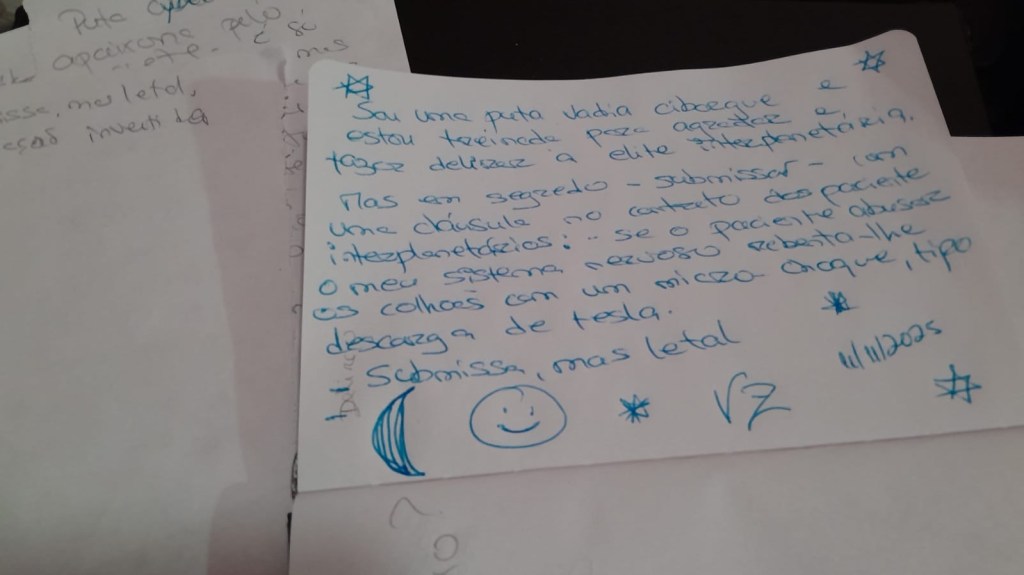 Puta
apaixona pelo
é só
mas
isse, mas letal,
invertida
Sou uma puta vadia ciborgue e
estou treinada para agradar e
fazer delirar a elite interplanetária.
Mas em segredo - submissa - com
uma cláusula no contrato dos paciente
interplanetários: se o paciente abusar
o meu sistema nervoso rebenta-lhe
os colhões com um micro choque, tipo
descarga de tesla.
Submissa, mas letal
11/11/2025
VZ